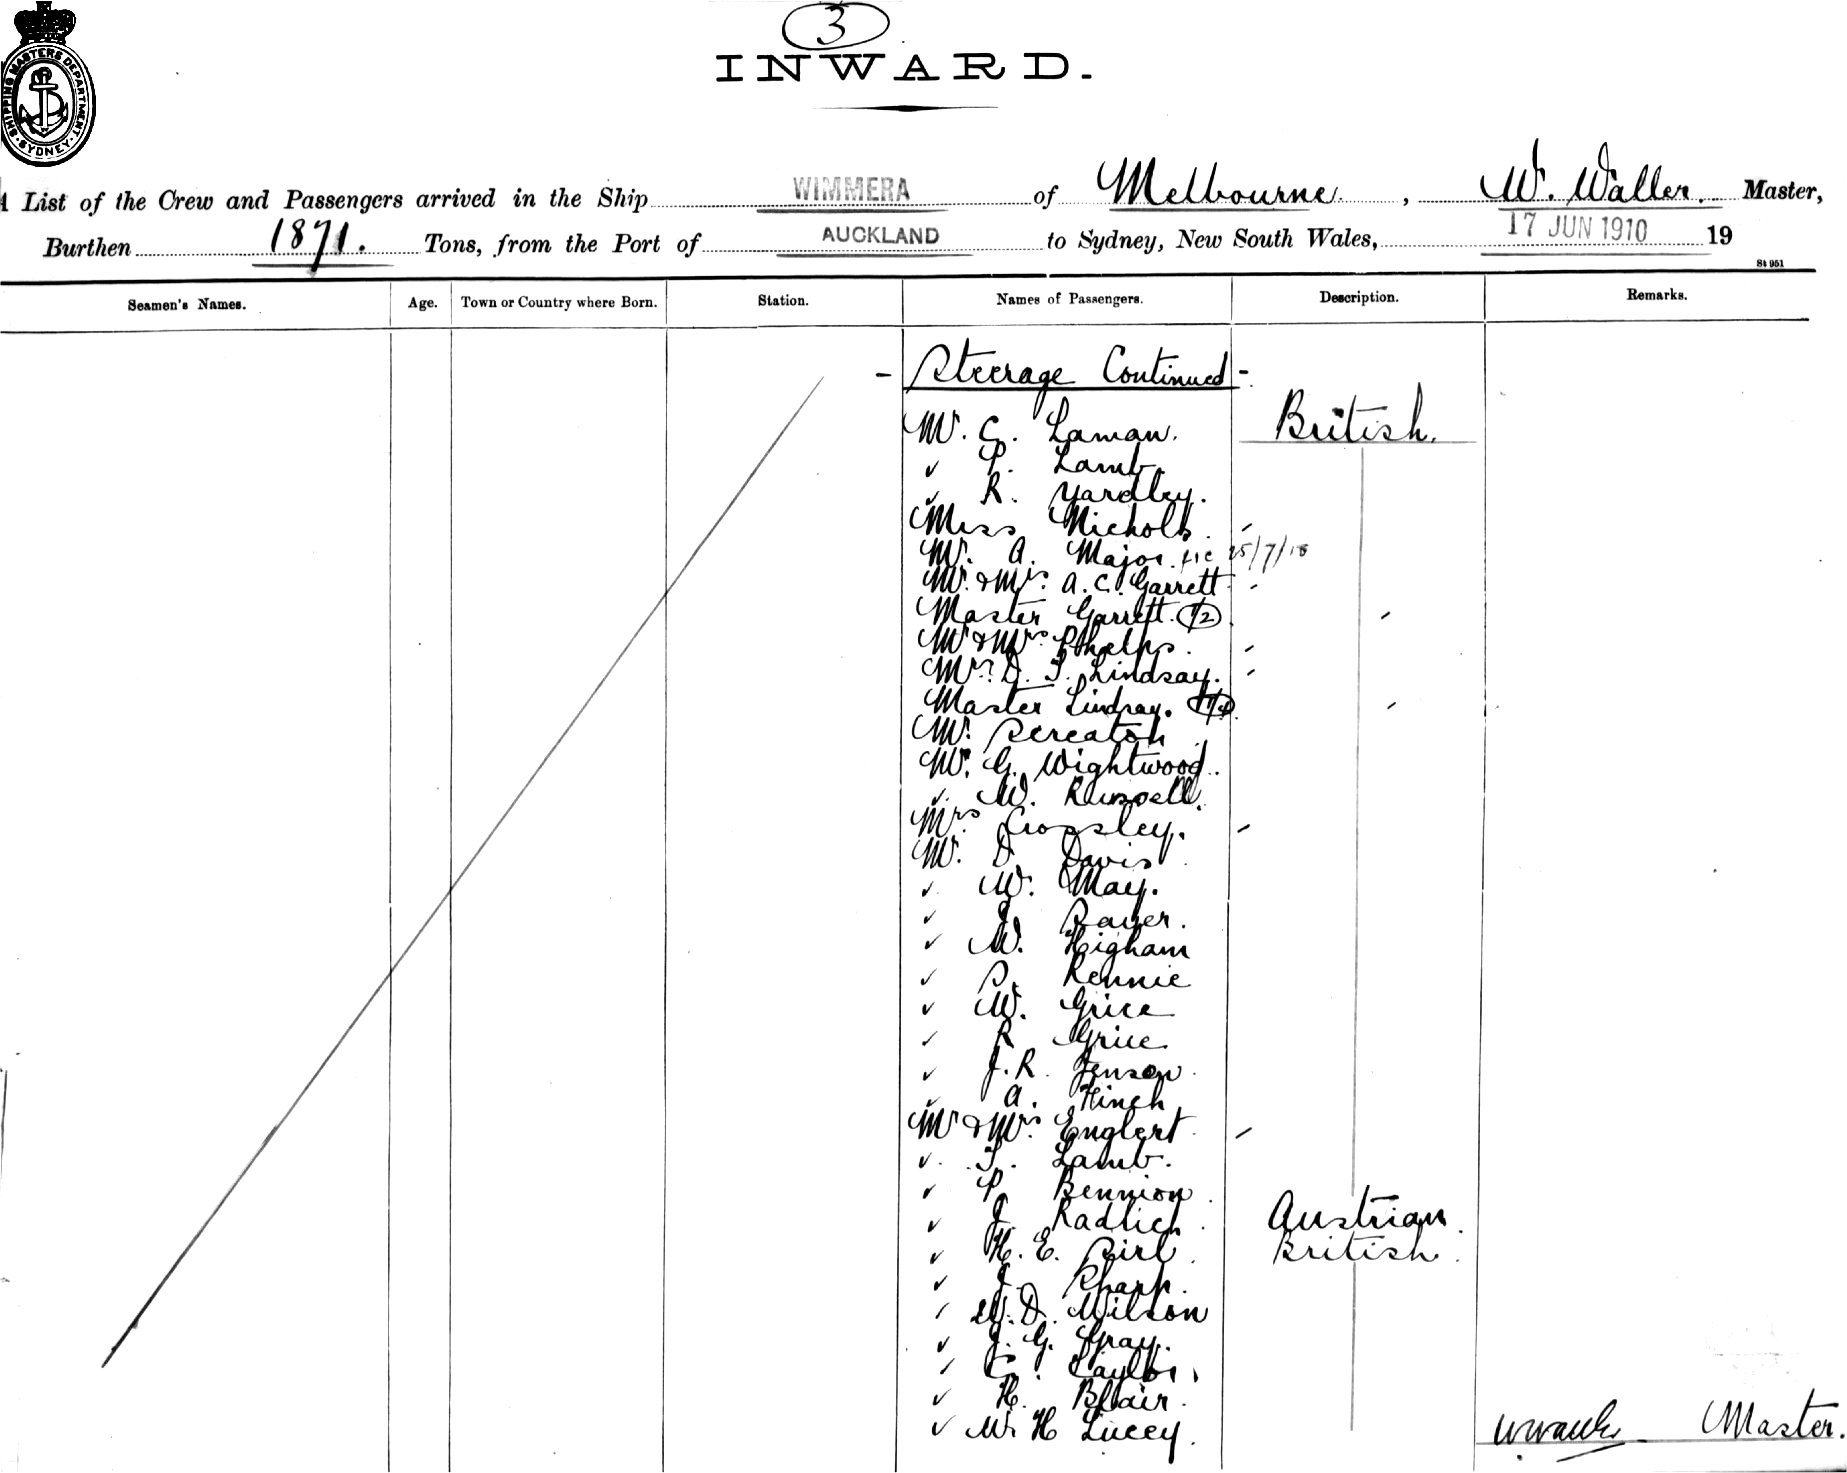 3
INWARD.
SHIPPING MASTERS DEPARTMENT. SYDNEY.
A List of the Crew and Passengers arrived in the Ship WIMMERA of Melbourne, W. Waller. Master,
Burthen 1871. Tons, from the Port of AUCKLAND to Sydney, New South Wales, 17 JUN 1910 19
St 951
Seamen's Names. Age. Town or Country where Born. Station. Names of Passengers. Description. Remarks.
- Steerage Continued -
Mr. C. Laman. British.
✓ P. Lamb.
✓ R. Yardley.
Miss Nicholls
Mr. A. Major. 25/7/18
Mr. & Mrs. A. C. Garrett
Master Garrett. 1/2
Mr & Mrs Phelps.
Mrs. D. T. Lindsay.
Master Lindsay.
Mr. Sereaton
Mr. G. Wightwood.
✓ W. Russell.
Mrs Crossley.
Mr. D. Davis
✓ W. May.
✓ J. Sayer.
✓ W. Higham
✓ S. Rennie
✓ W. Grice
✓ R Grice
✓ J. R. Jenson
✓ A. Hinch
Mr & Mrs Englert
✓ T. Lamb.
✓ P. Bennion
✓ J Radlich Austrian.
✓ H. E. British.
✓ J. Sharp.
✓ W. D. Wilson
✓ J. G. Gray.
✓ C. Taylor.
✓ H. Blair.
✓ W. H Lucey.
Master.